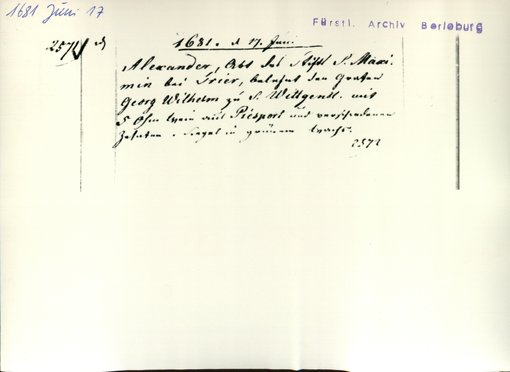 1681 Juni 17
Fürstl. Archiv Berleburg
2571
1681. d 17. Juni.
Alexander, Abt des Stifts S. Maxi-
min bei Trier, belehnt den Grafen
Georg Wilhelm zu S. Wittgenst. mit
5 Ohm Wein aus Piesport und verschiedenen
Zehnten. Siegel in grünem Wachs.
2572